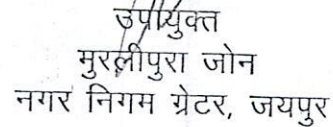 उपायुक्त
मुरलीपुरा जोन
नगर निगम ग्रेटर, जयपुर